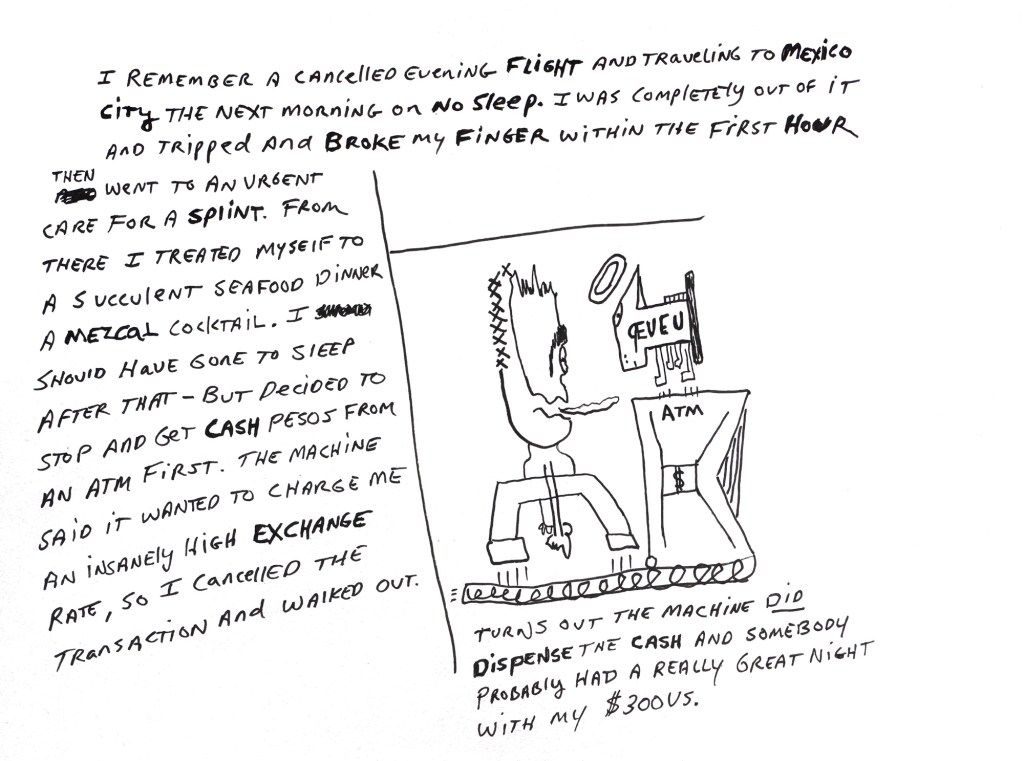 I REMEMBER A CANCELLED EVENING FLIGHT AND TRAVELING TO MEXICO
CITY THE NEXT MORNING ON NO SLEEP. I WAS COMPLETELY OUT OF IT
AND TRIPPED AND BROKE MY FINGER WITHIN THE FIRST HOUR
THEN
WENT TO AN URGENT
CARE FOR A SPLINT. FROM
THERE I TREATED MYSELF TO
A SUCCULENT SEAFOOD DINNER
A MEZCAL COCKTAIL. I
SHOULD HAVE GONE TO SLEEP
AFTER THAT - BUT DECIDED TO
STOP AND GET CASH PESOS FROM
AN ATM FIRST. THE MACHINE
SAID IT WANTED TO CHARGE ME
AN INSANELY HIGH EXCHANGE
RATE, SO I CANCELLED THE
TRANSACTION AND WALKED OUT.
ATM
$
TURNS OUT THE MACHINE DID
DISPENSE THE CASH AND SOMEBODY
PROBABLY HAD A REALLY GREAT NIGHT
WITH MY $300US.